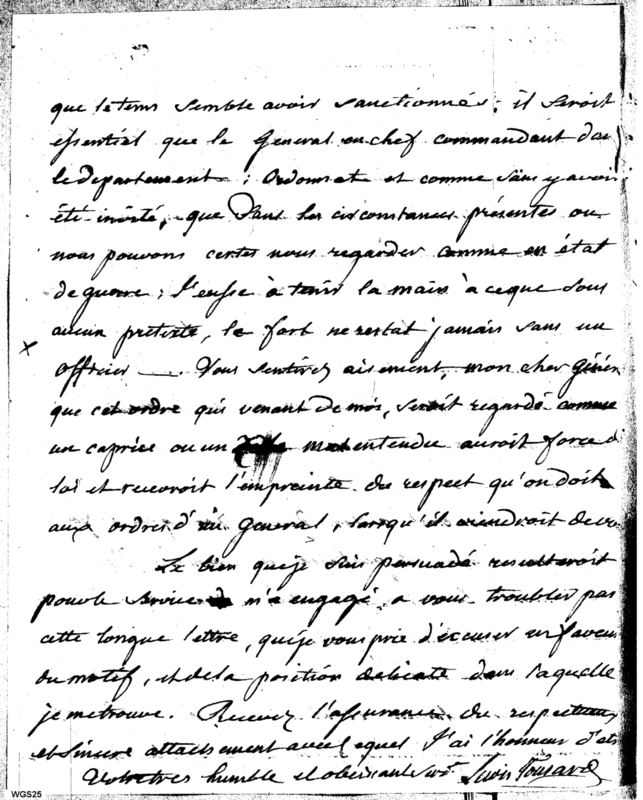 que le tems semble avoir sanctionnés; il seroit
essentiel que le Général en chef commandant dans
le département; ordonnat et comme sans y avoir
été invité, que dans les circonstances présentes ou
nous pouvons certes nous regarder comme en état
de guerre; J'eusse à tenir la main à ce que sous
aucun prétexte, le fort ne restat jamais sans un
X
officier —. Vous sentirez aisement, mon cher Génér
que cet ordre qui venant de moi, seroit regardé comme
un caprice ou un malentendu auroit force d
loi et recevroit l'empreinte du respect qu'on doit
aux ordres d'un Général, lorsqu'il viendroit de vo
Le bien que je suis persuadé resulteroit
pour le service m'a engagé a vous troubler par
cette longue lettre, que je vous prie d'excuser en faveur
du motif, et de la position délicate dans laquelle
je me trouve. Recevez l'assurance du respectueux
et sincere attachement avec lequel J'ai l'honneur d'etre
Votre tres humble et obeissant servt. Louis Tousard
WGS25